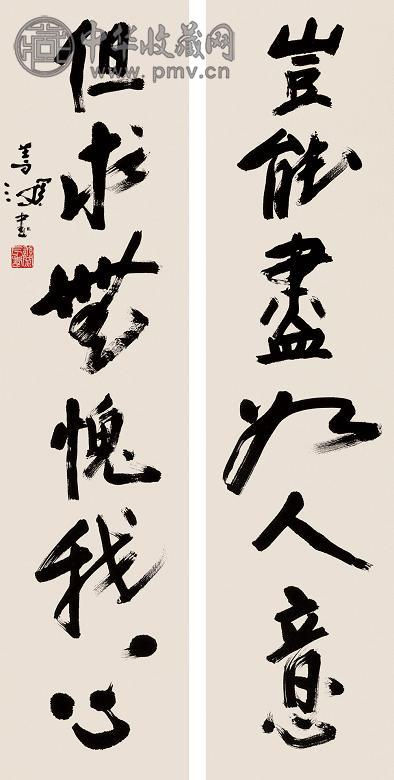 中华收藏网
www.pmv.cn
豈能盡如人意
但求無愧我心
善深書